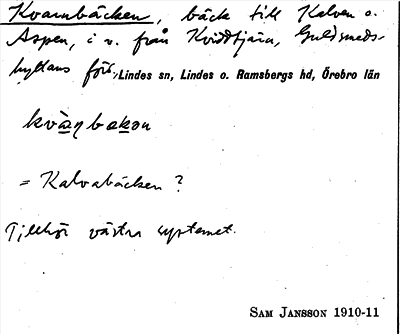 Kvarnbäcken, bäck till Kalven o.
Aspen, i v. från Kvidtjärn, Guldsmeds-
hyttans förs., Lindes sn, Lindes o. Ramsbergs hd, Örebro län
= Kalvabäcken?
Tillhör västra systemet.
SAM JANSSON 1910-11